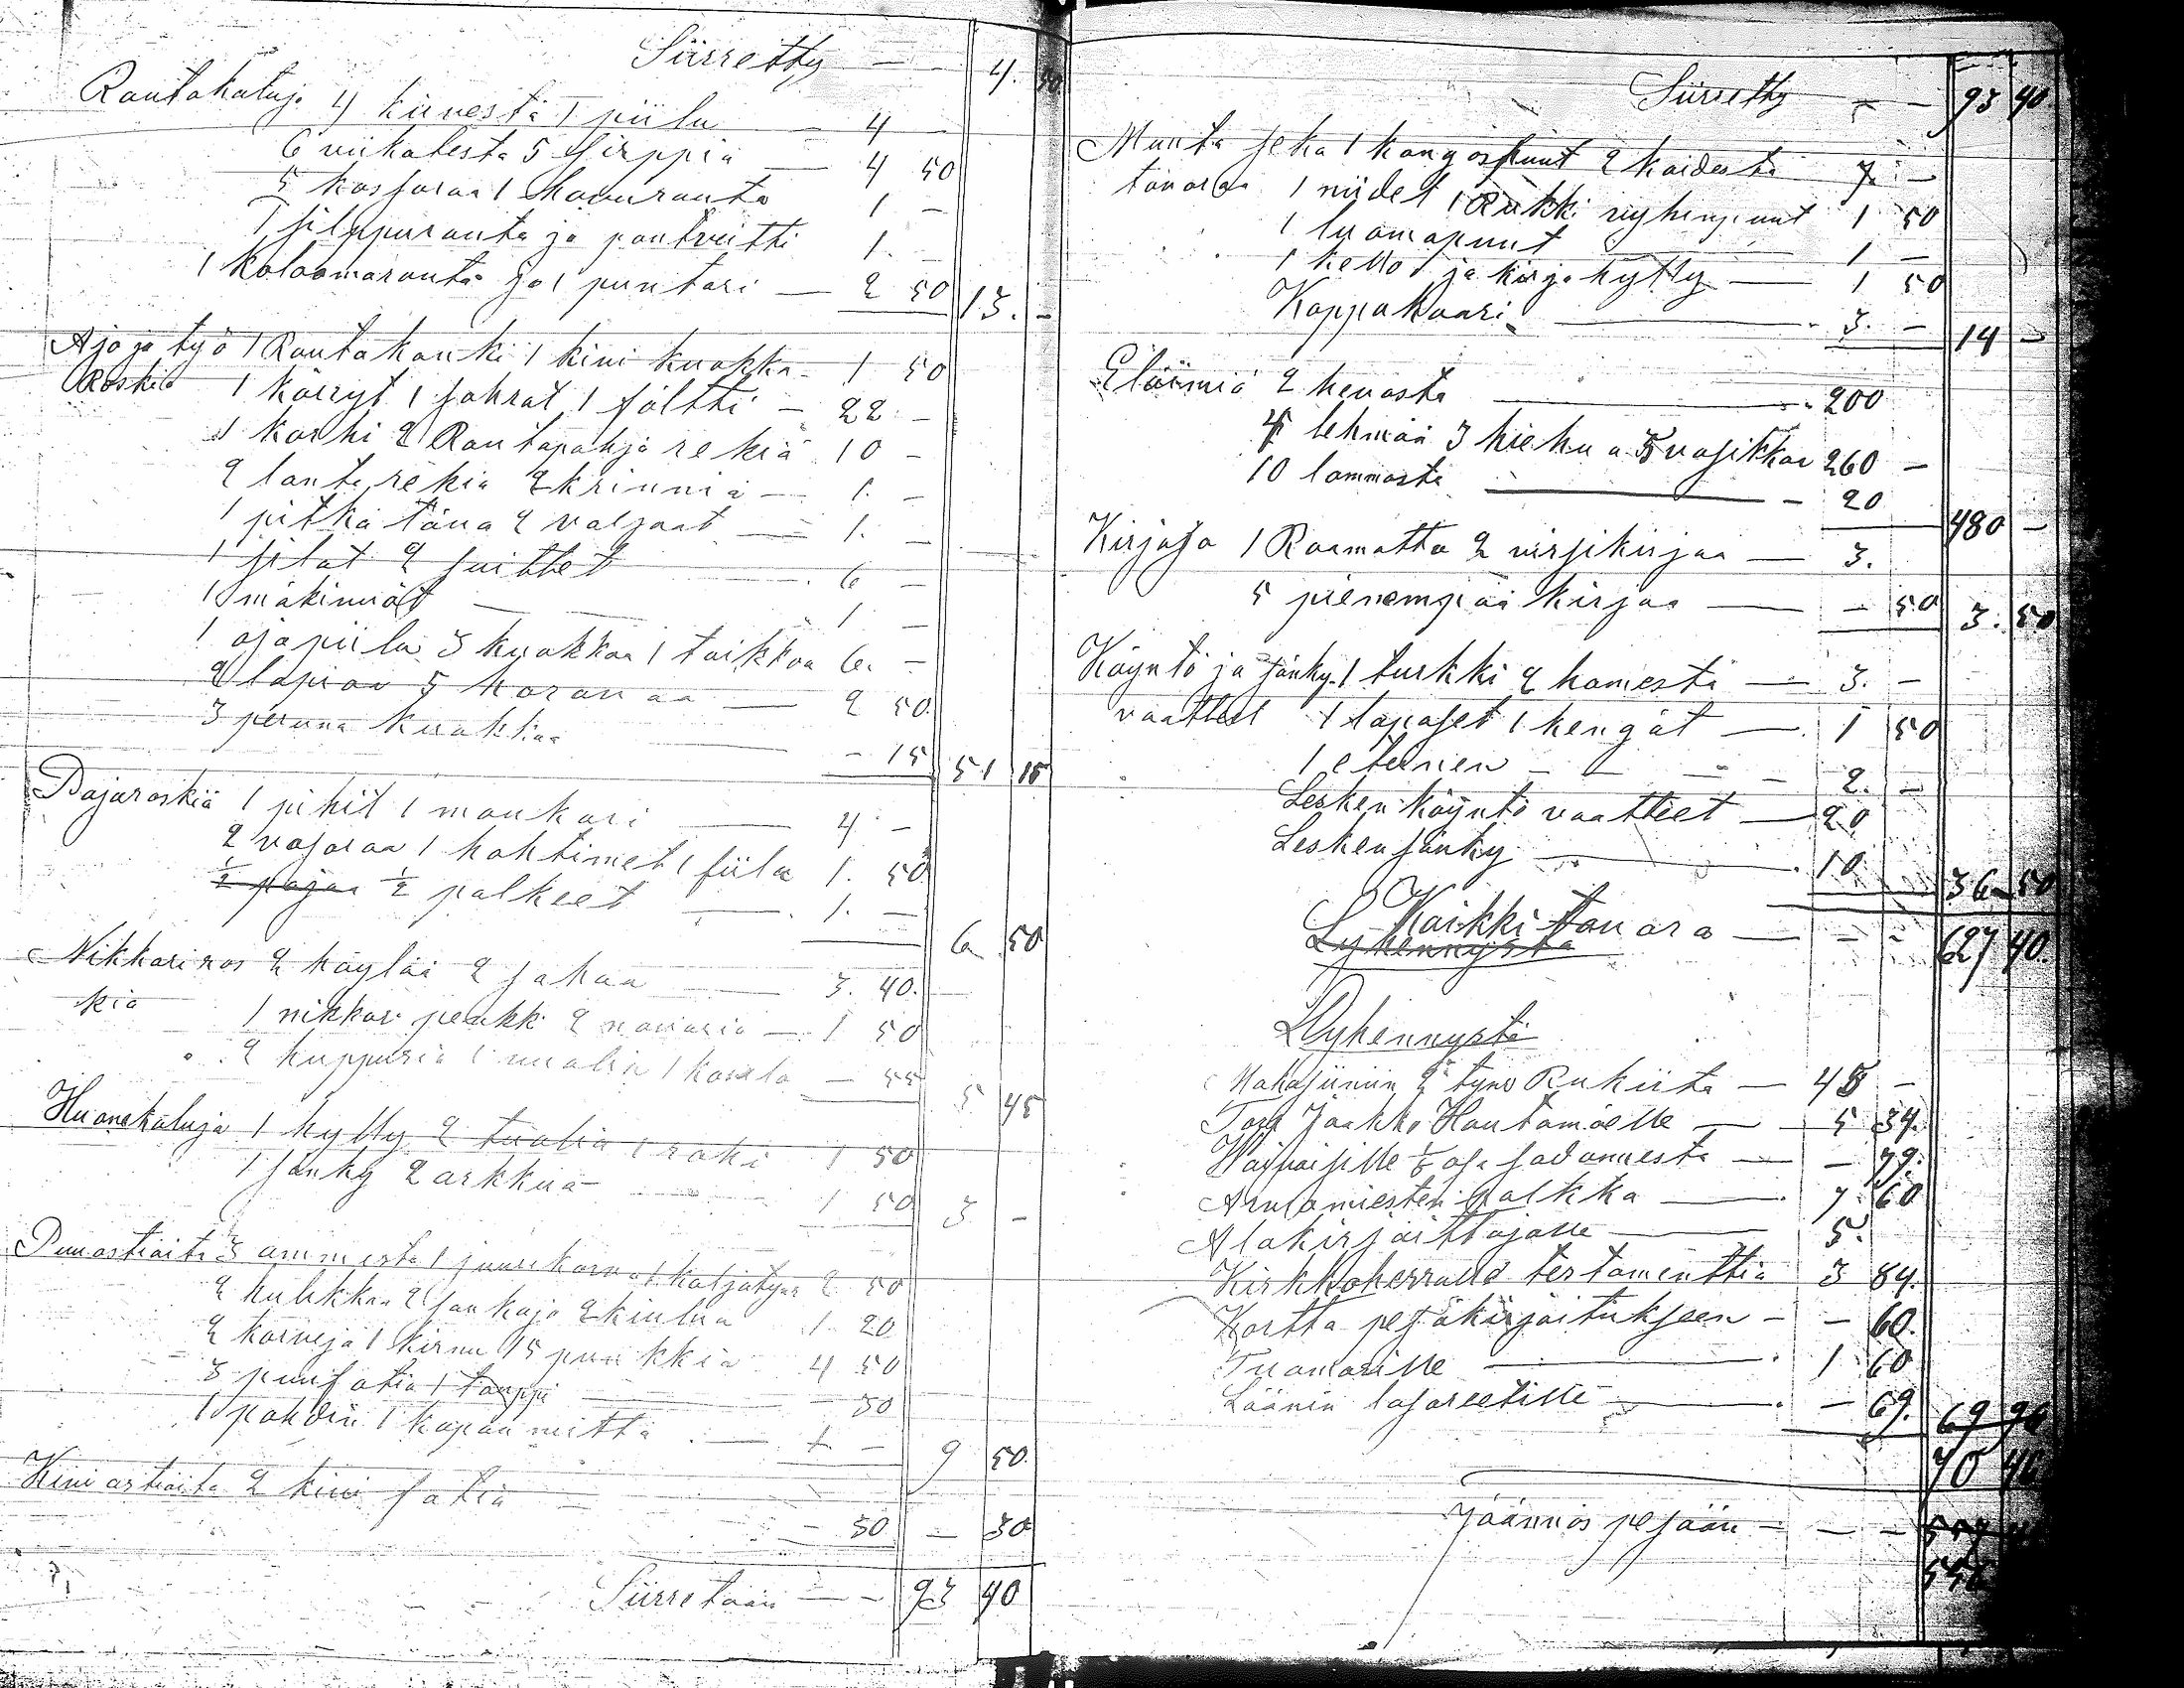 Siirretty — - 4. 50
Rautakaluja 4 kirvestä 1 piilu — 4 —
6 viikatesta 5 sirppia — 4 50
5 kasfaraa 1 havurauta 1 —
1 silppurauta ja pantveitti 1. —
1 kolaamarauta ja 1 puntari — 2 50 13. -
Ajo ja työ 1 Rautakanki 1 kivi kuokka - 1 50
Roskia 1 kärryt 1 sahrat 1 fältti — 22 -
1 korki 2 Rautapohja rekiä 10 -
2 lanta rekiä 2 krinniä — 1. —
1 pitkä täna 2 valjaat — 1. —
1 silat 2 suittet 6 —
1 mäkivyöt — 1 —
1 ojapiilu 3 kuokkaa 1 taikkoa 6. —
2 lapiaa 5 haravaa — 2 50.
3 peruna kuokkaa — - 15 51 15
Pajaroskia 1 pihit 1 moukari — 4 -
2 vasaraa 1 hohtimet 1 fiila 1. 50
½ pajaa ½ palkeet — 1. — 6 50
Nikkariros 2 höylää 2 sahaa — 3. 40.
kia 1 nikkari penkki 2 navaria — 1 50
2 kuppuria 1 1 — 55 5 45
Huonekaluja 1 hylly 2 tualia 1 raki 1 50
1 sänky 2 arkkua 1 50 3 -
Puuastioita 3 ammesta 1 juurikorva 1 kaljatynr 2 50
2 kulikkaa 2 sankaja 2 kiulua 1 20
2 korveja 1 kirnu 15 punkkia 4 50
3 puufatia 1 tauppi — 30
1 pahdin 1 kapan mitta — 1 — 9 50.
Kiviastioita 2 kivi fatia - 30 — 30
Siirretään — - 93 40
Siirretty - — 93 40
Muuta seka 1 kangaspuut 2 kaidesta 7. —
tavaraa 1 niidet 1 Rukki viyhinpuut 1 50
1 luomapuut 1 —
1 kello 1 ja kirjahylly — 1 50
Kappakaari — 3. — 14 —
Eläimiä 2 hevosta — 200
4 lehmää 3 hiehua 3 vasikkaa 260 —
10 lammasta — 20 480 —
Kirjoja 1 Raamattu 2 virsikirjaa — 3.
5 pienempää kirjaa — - 50 3. 50
Käyntö ja sänky. 1 turkki 2 hamesta — 3. —
vaatteet 1 lapaset 1 kengät — 1 50
1 eteinen - — - 2. —
Lesken käyntö vaatteet — 20
Lesken sänky — 10. 36 50
Kaikki tavara — - - 627 40.
Lyhennystä
Lyhennystä
Makasiiniin 2 tynr Rukiita — 45 -
Torp Jaakko Hautamäelle — 5 34.
Waivaisille ⅛ osa sadannesta — - 79.
Arviomiesten palkka — 7. 60
Alakirjoittajalle — 5.
Kirkkoherralle testamenttia 3 84.
Kartta pesäkirjoitukseen - - 60.
Tuomarille — 1 60
Läänin lasareetille — - 69. 69 96
70 46
Jäännös pesään - — -